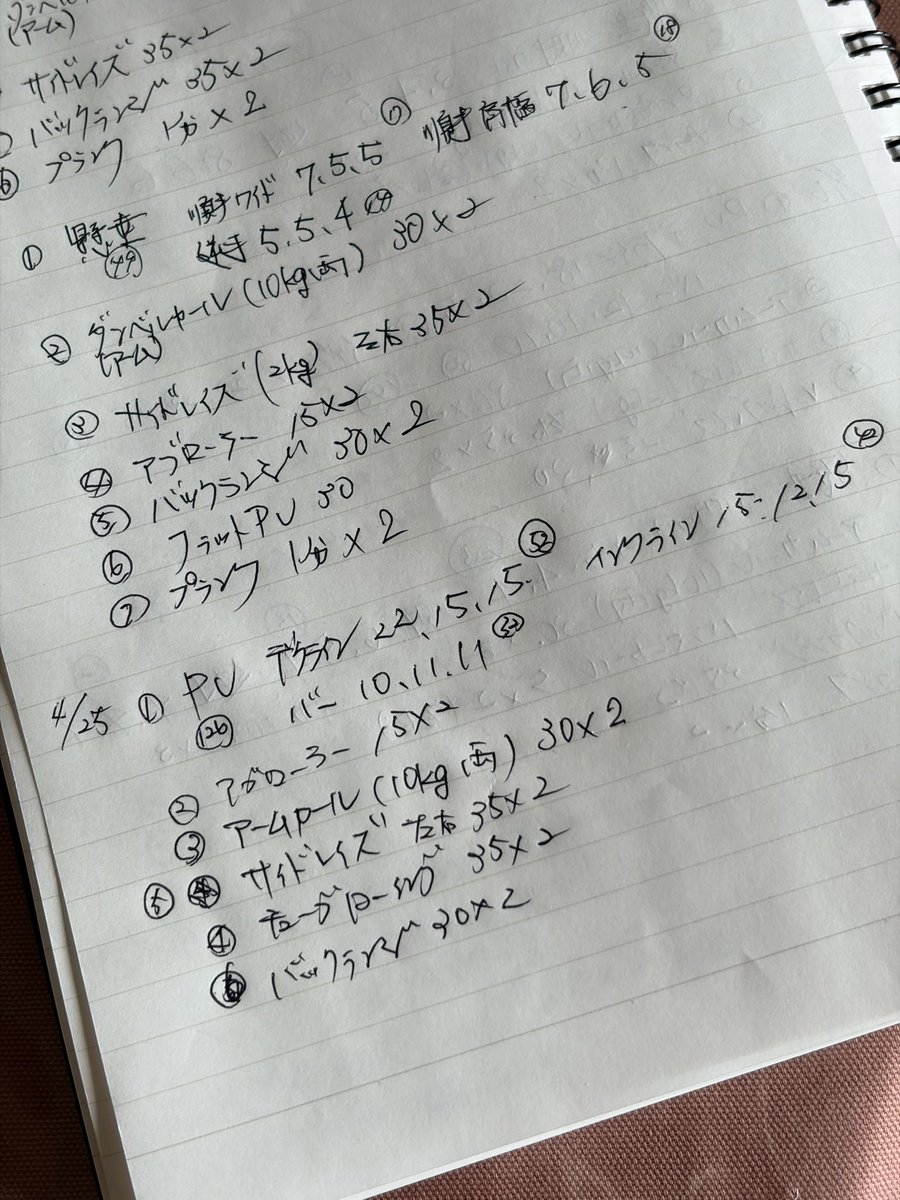 (アーム)
サイドレイズ 35×2
バックランジ 35×2
⑥ プランク 1分×2
① 懸垂 順手ワイド 7、5、5 ⑰ 順手肩幅 7、6、5 ⑱
㊾ 逆手 5、5、4 ⑭
② ダンベルカール(10kg両) 30×2
(アーム)
③ サイドレイズ(2kg) 左右35×2
④ アブローラー 15×2
⑤ バックランジ 30×2
⑥ フラットPU 30
⑦ プランク 1分×2
4/25 ① PU デクライン 22、15、15 52 インクライン 15、12、15 ㊷
126 バー 10、11、11 ㉜
② アブローラー 15×2
③ アームカール(10kg両) 30×2
⑤ サイドレイズ 左右 35×2
④ チューブローイング 35×2
バックランジ 30×2